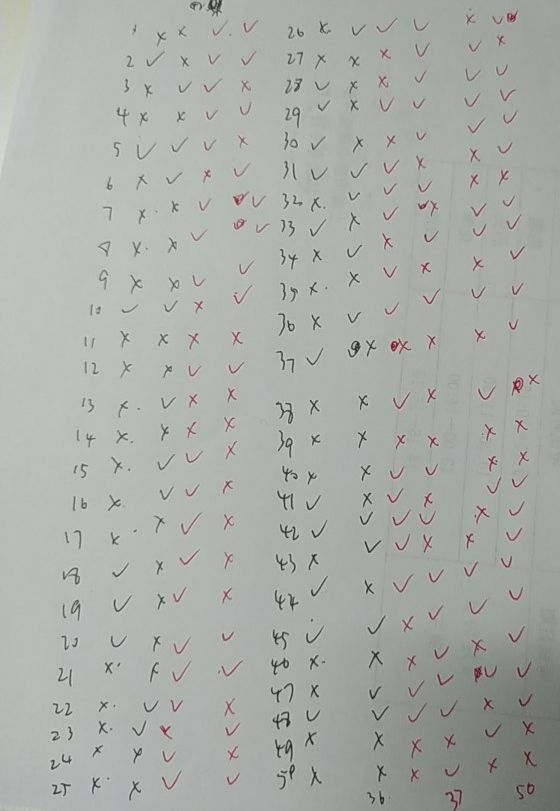 1 × × ✓ ✓
2 ✓ × ✓ ✓
3 × ✓ ✓ ×
4 × × ✓ ✓
5 ✓ ✓ ✓ ×
6 × ✓ × ✓
7 × × ✓ ✓
8 × × ✓ ✓
9 × × ✓ ✓
10 ✓ ✓ × ✓
11 × × × ×
12 × × ✓ ✓
13 × ✓ × ×
14 × × × ×
15 × ✓ ✓ ×
16 × ✓ ✓ ×
17 × × ✓ ×
18 ✓ × ✓ ×
19 ✓ × ✓ ×
20 ✓ × ✓ ✓
21 × × ✓ ✓
22 × ✓ ✓ ×
23 × ✓ ×
24 × × ✓ ×
25 × × ✓ ✓
26 × ✓ ✓ ✓ × ✓
27 × × × ✓ ✓ ×
28 ✓ × × ✓ ✓ ✓
29 ✓ × ✓ ✓ ✓ ✓
30 ✓ × × ✓ ✓ ✓
31 ✓ ✓ ✓ × × ✓
32 × ✓ ✓ ✓ × ×
33 ✓ × ✓ × ✓ ✓
34 × ✓ × ✓ ✓ ✓
35 × × ✓ × × ✓
36 × ✓ ✓ ✓ ✓ ✓
37 ✓ × × × × ✓
38 × × ✓ × ✓ ×
39 × × × × × ×
40 × × ✓ ✓ × ×
41 ✓ × ✓ × ✓ ✓
42 ✓ ✓ ✓ ✓ × ✓
43 × ✓ ✓ × × ✓
44 ✓ × ✓ ✓ ✓ ✓
45 ✓ ✓ × ✓ ✓ ✓
46 × × × ✓ × ✓
47 × ✓ ✓ ✓ ✓ ✓
48 ✓ ✓ ✓ ✓ × ✓
49 × × × × ✓ ×
50 × × × ✓ × ×
36 37 50